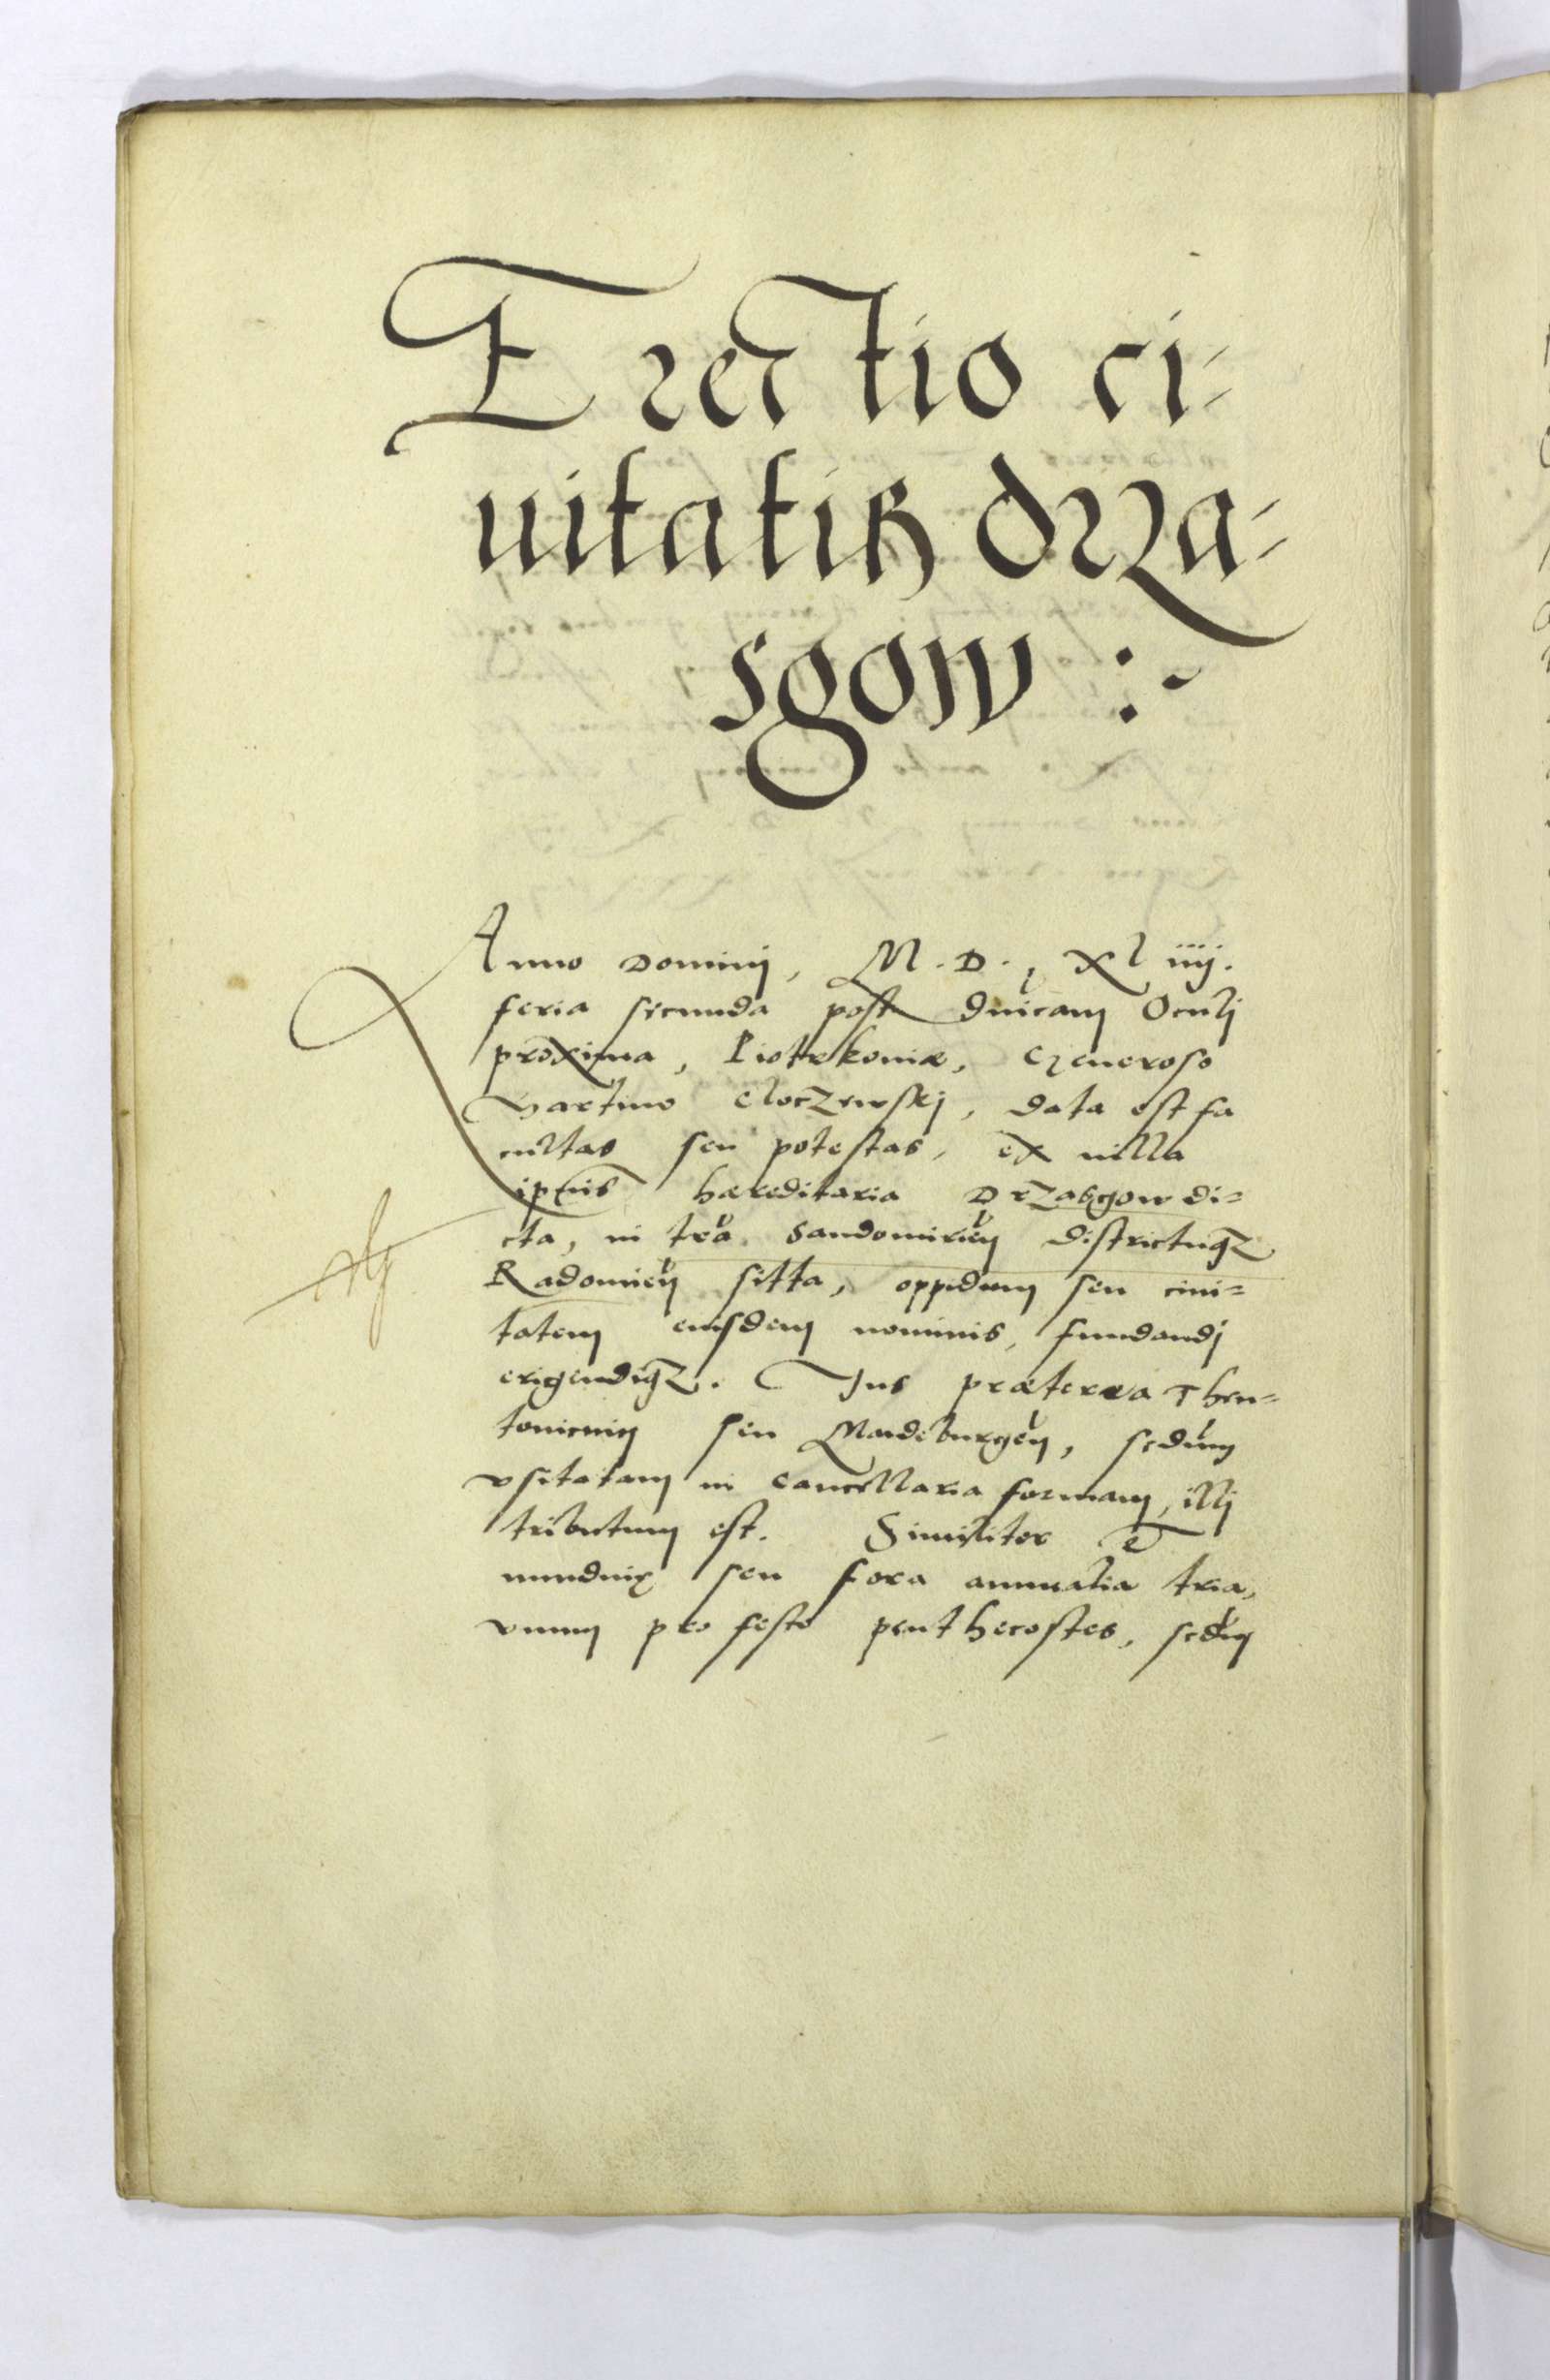 Erectio ci-
uitatis drza-
sgow :~
Anno Dominij, M.D., XLiiij.
feria secunda post dnicam Oculj
proxima, Piotrkoviæ, Generoso
Martino Cloczewskj, data est fa
cultas seu potestas, ex uilla
ipsius hæreditaria Drzasgow di=
cta, in tra Sandomirien districtuq3
Radomien sitta, oppidum seu ciui=
tatem eiusdem nominis, fundandj
erigendiq3. Jus præterea Theu=
tonicum seu Maideburgen, sedum
vsitatam in Cancellaria formam, illj
tributum est. Similiter et
nundinę seu fora annualia tria,
vnum pro festo penthecostes, sedm